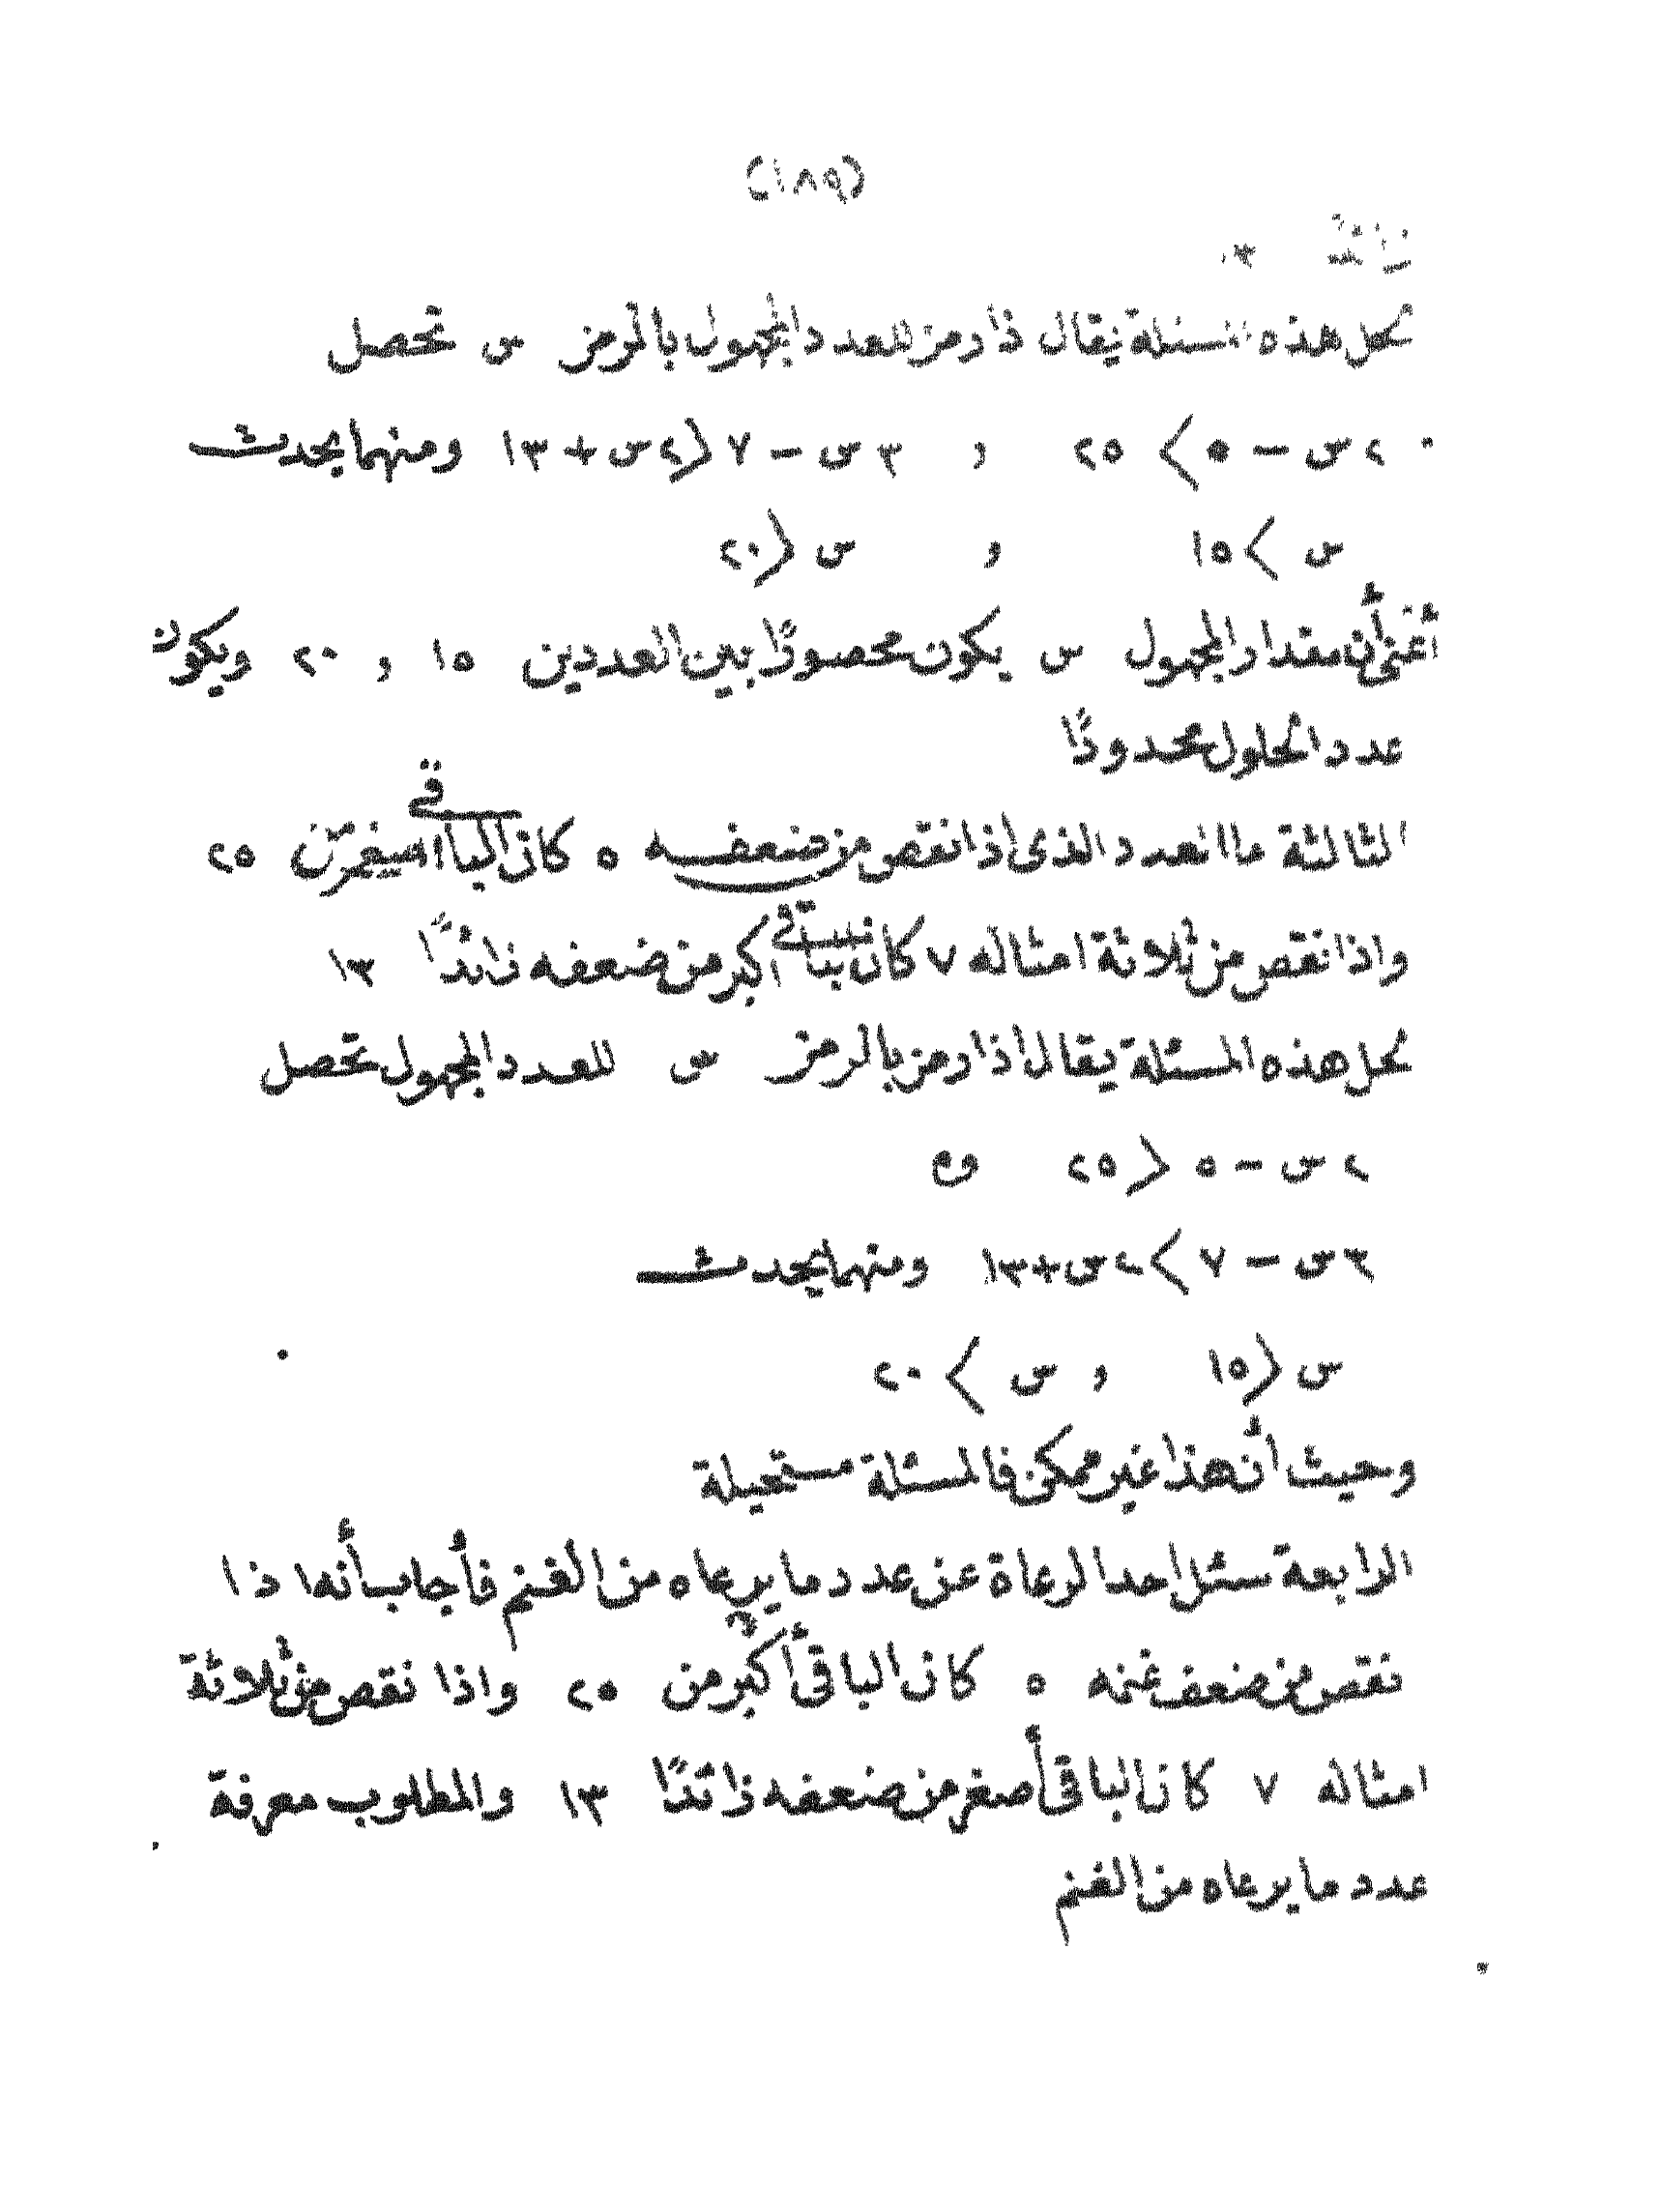 (١٨٩)
زائدًا ١٣
لحل هذه المسئلة يقال اذا رمز للعدد المجهول بالرمز س تحصل
٢س − ٥ 〉 ٢٥ , ٣س − ٧ 〈 ٢س + ١٣ ومنهما يحدث
س 〉 ١٥ , س 〈 ٢٠
أعنى أن مقدار المجهول س يكون محصورًا بين العددين ١٥ , ٢٠ ويكون
عدد الحلول محدودًا
الثالثة ما العدد الذى اذا نقص من ضعفه ٥ كان الباقى اصغر من ٢٥
واذا نقص من ثلاثة امثاله ٧ كان الباقى اكبر من ضعفه زائدًا ١٣
لحل هذه المسئلة يقال اذا رمز بالرمز س للعدد المجهول تحصل
٢س − ٥ 〈 ٢٥ و
٣س − ٧ 〉 ٢س + ١٣ ومنهما يحدث
س 〈 ١٥ , س 〉 ٢٠
وحيث أن هذا غير ممكن فالمسئلة مستحيلة
الرابعة سئل احد الرعاة عن عدد ما يرعاه من الغنم فأجاب بأنه اذا
نقص من ضعف غنمه ٥ كان الباقى أكبر من ٢٥ واذا نقص من ثلاثة
امثاله ٧ كان الباقى أصغر من ضعفه زائدًا ١٣ والمطلوب معرفة
عدد ما يرعاه من الغنم